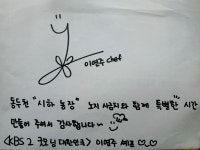 이연주 chef
동두천 "시하 농장" 노지 사람과 함께 특별한 시간
만들어 주셔서 감사합니다~
<KBS 2 굿모닝 대한민국> 이연주 셰프 ♡♡